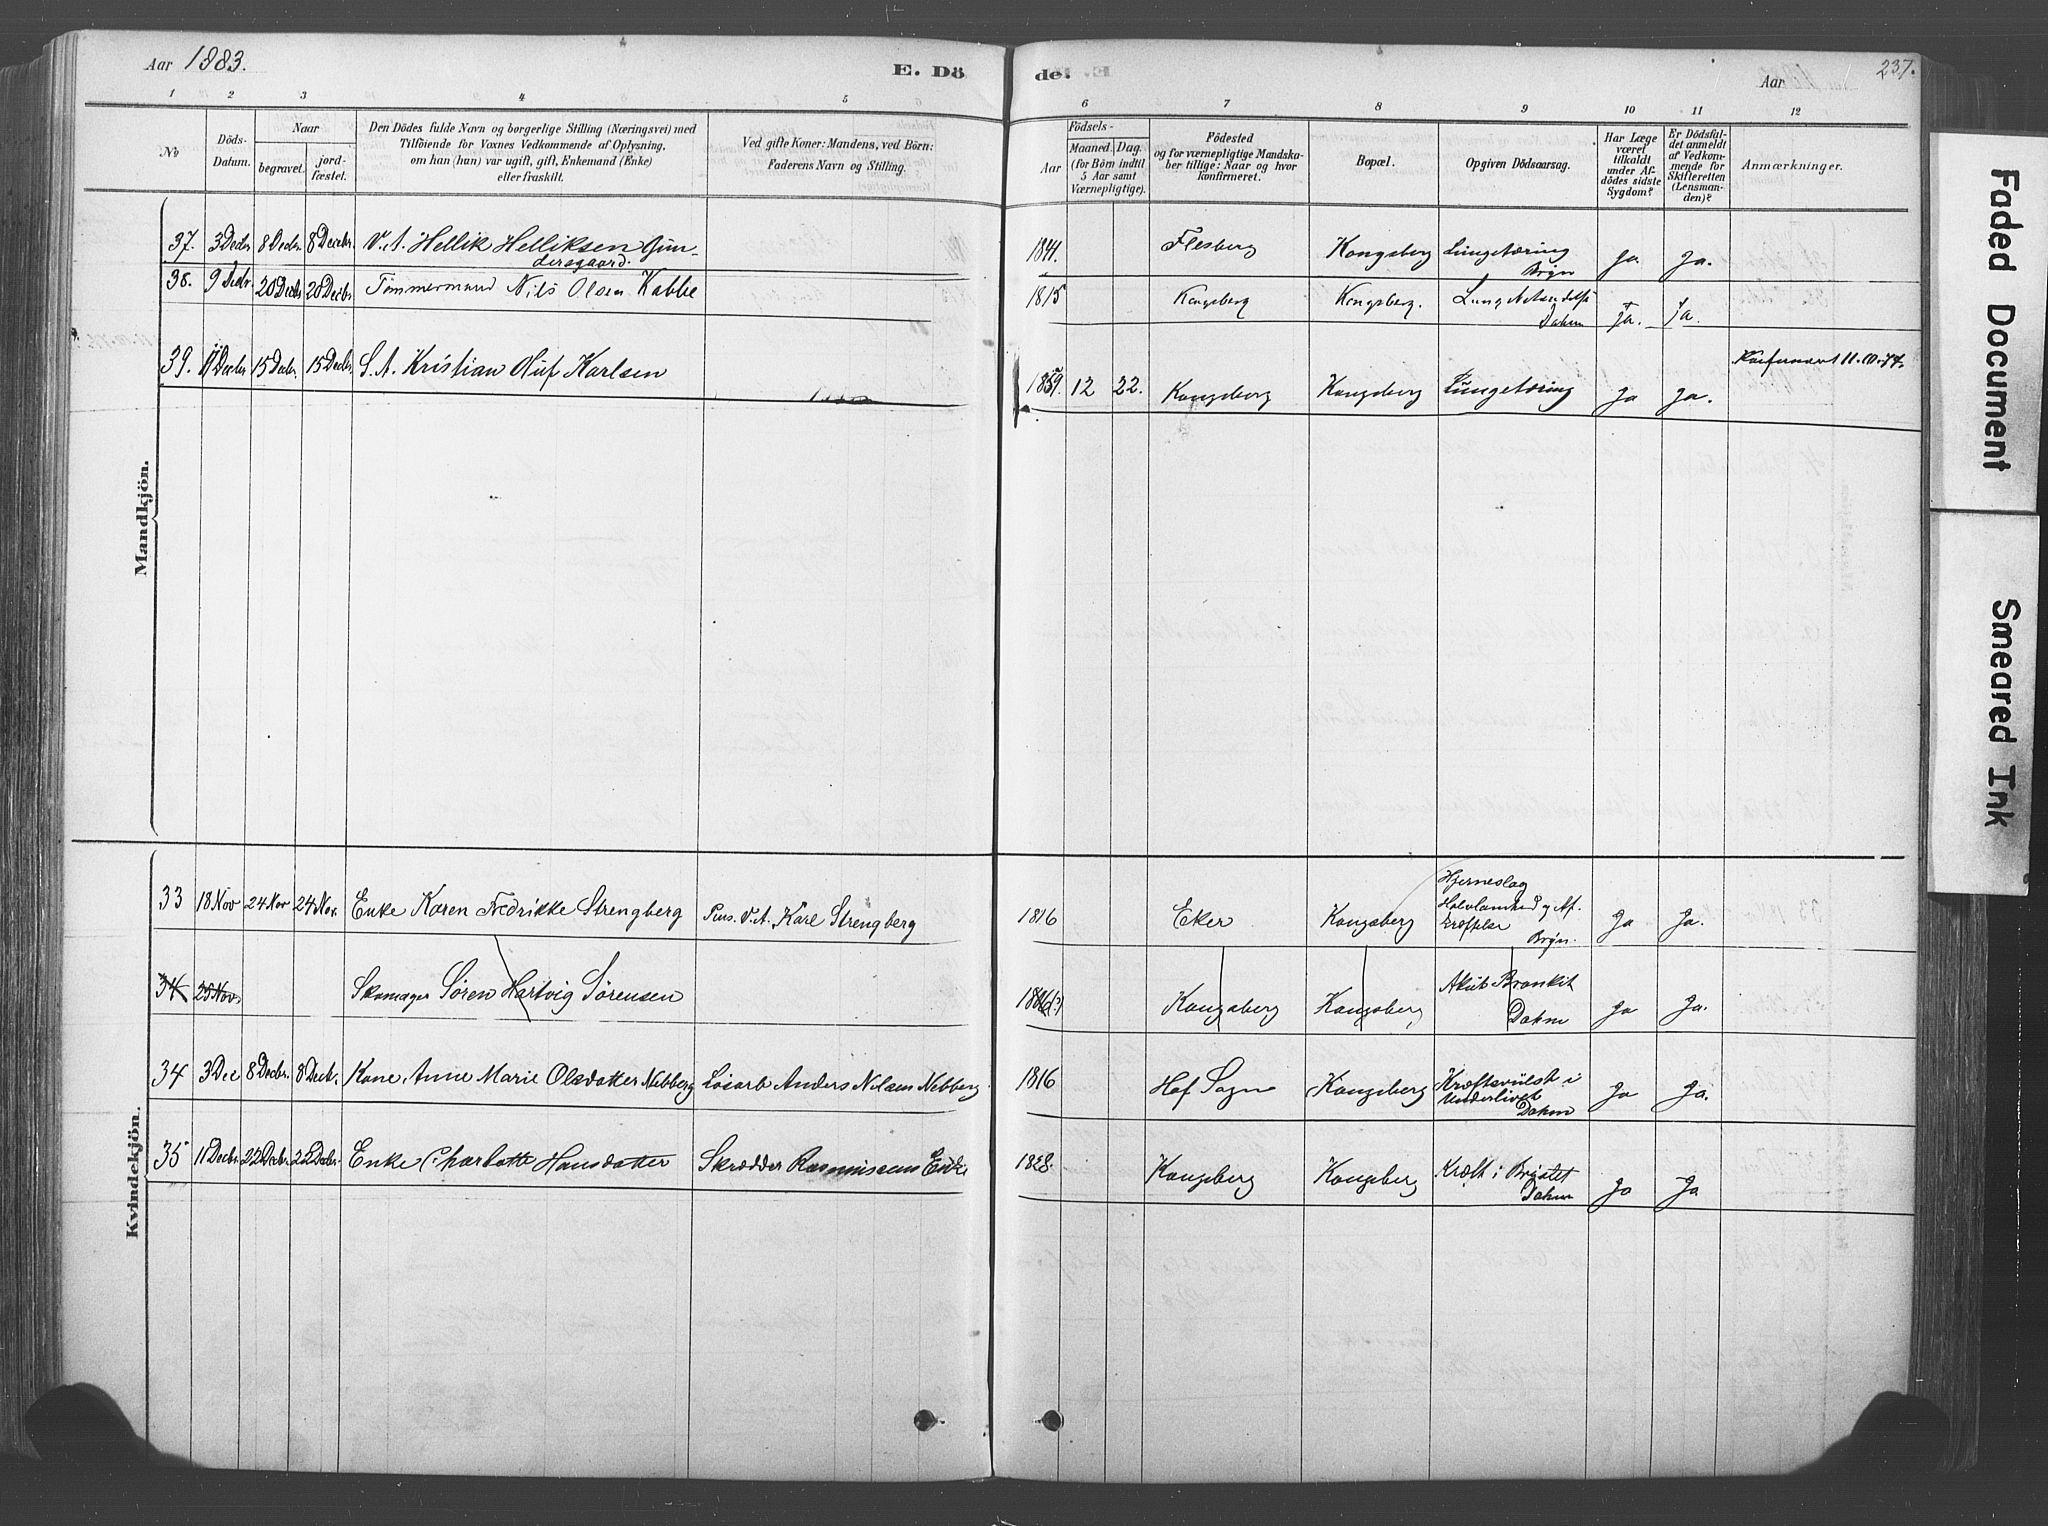 Aar 1883.
E. Dö
de.
Aar
237.
1 2 3 4 5 6 7 8 9 10 11 12
No
Döds-
Datum.
Naar
begravet.
jord-
fæstet.
Den Dödes fulde Navn og borgerlige Stilling (Næringsvei) med
Tilföiende for Voxnes Vedkommende af Oplysning,
om han (hun) var ugift, gift, Enkemand (Enke)
eller fraskilt.
Ved gifte Koner: Mandens, ved Börn:
Faderens Navn og Stilling.
Födsels-
Aar
Maaned.
Dag.
(for Börn indtil
5 Aar samt
Værnepligtige).
Födested
og for værnepligtige Mandska-
ber tillige: Naar og hvor
konfirmeret.
Bopæl.
Opgiven Dödsaarsag.
Har Læge
været
tilkaldt
under Af-
dödes sidste
Sygdom?
Er Dödsfal-
det anmeldt
af Vedkom-
mende for
Skifteretten
(Lensman-
den)?
Anmærkninger.
Mandkjön.
37. 3 Decbr 8 Decbr. 8 Decebr. V. A. Hellik Helliksen Gun-
dersgaard. 1841. Flesberg Kongsberg Lungetæring
Brÿn Ja. Ja.
38. 9 Decbr 20 Decbr 20 Decbr Tømmermand Nils Olsen Kabbe 1815 Kongsberg Kongsberg.
Dahm Ja. Ja.
39. 11 Decbr 15 Decbr. 15 Decbr. S. A. Kristian Oluf Karlsen 1859. 12 22. Kongsberg Kongsberg Lungetæring Ja Ja. 11-10-74.
Kvindekjön.
33 18 Nov 24 Nov 24 Nov. Enke Karen Fredrikke Strengberg Pens. V. A. Karl Strengberg 1816 Eker Kongsberg Hjerneslag
Halvlamhed og Af-
kræftelse
Brÿn. Ja Ja.
34 25 Novs Skomager Søren Hartvig Sørensen Kongsberg Kongsberg Akut Bronkit
Dahm Ja Ja.
34 3 Dec 8 Decbr. 8 Decb. Kone Anne Marie Olsdatter Nebberg Løsarb Anders Nilsen Nebberg 1816 Hof Sogn Kongsberg Kræftsvulst i
Underlivet
Dahm Ja Ja.
35 11 Decbr. 22 Decbr. 22 Decbr. Enke Charlotte Hansdatter Skrædder Rasmussens Enke Kongsberg Kongsberg Kræft i Brÿstet
Dahm Ja Ja
Faded Document
Smeared Ink